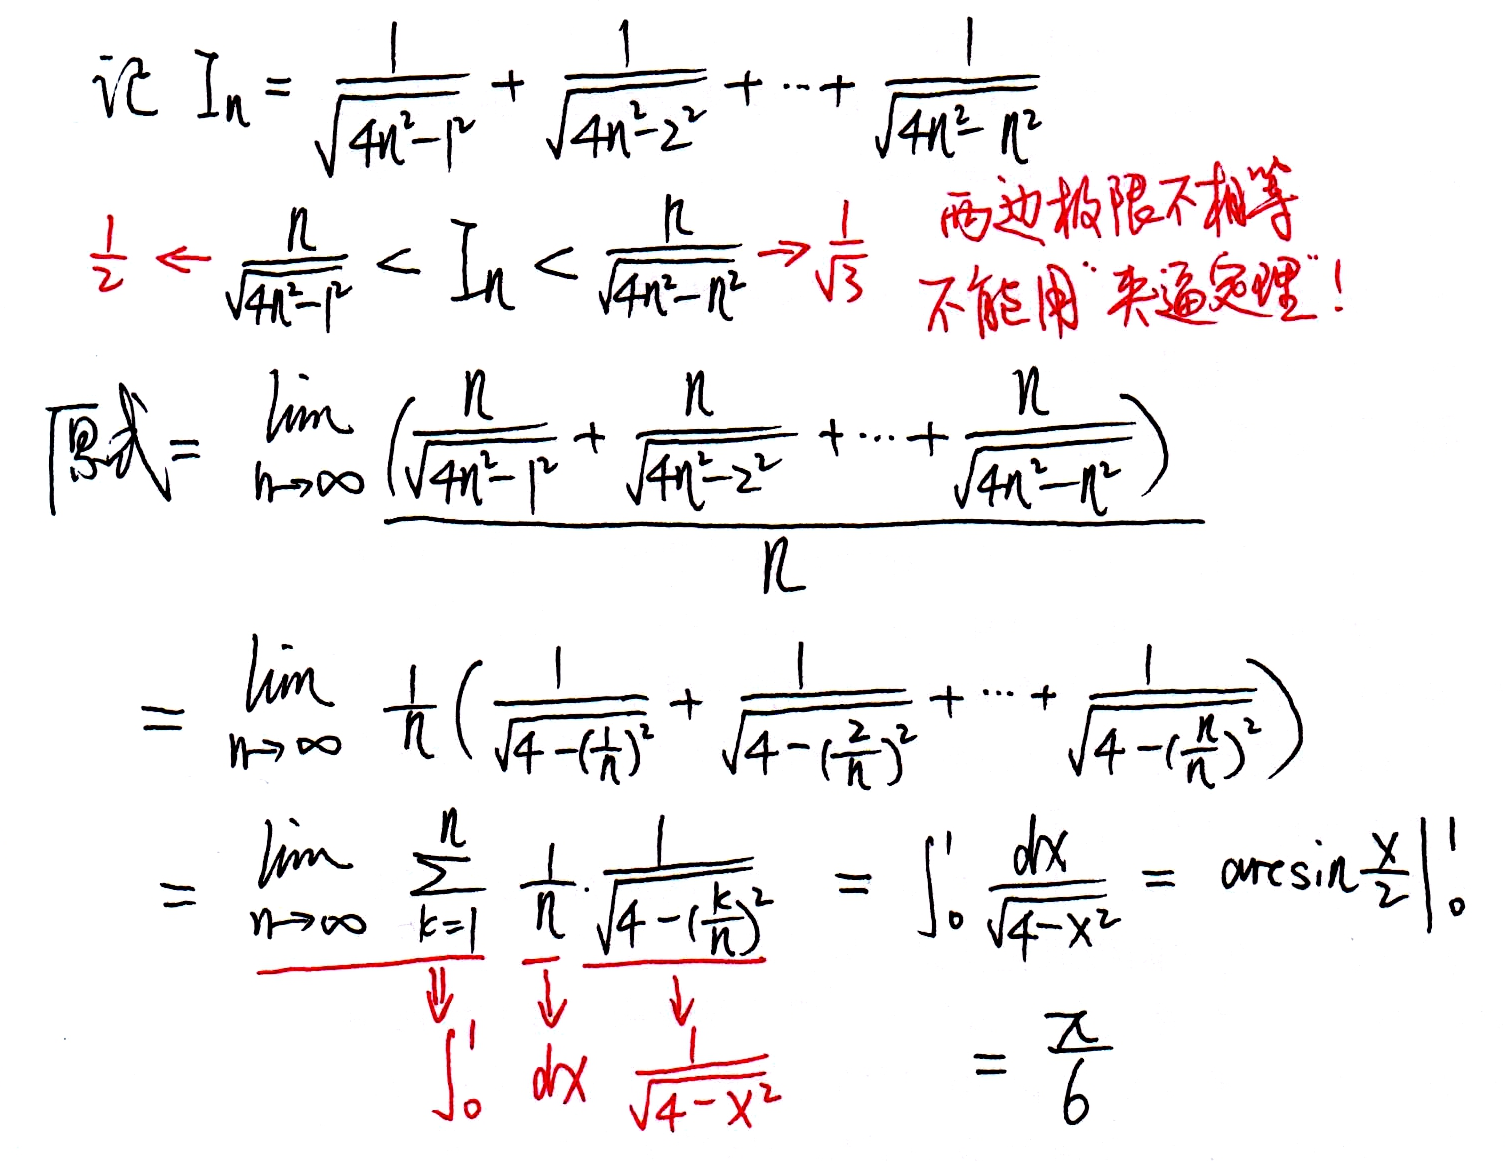 记 Iₙ = 1/√(4n²-1²) + 1/√(4n²-2²) + ··· + 1/√(4n²-n²)
1/2 ← n/√(4n²-1²) < Iₙ < n/√(4n²-n²) → 1/√3
两边极限不相等
不能用"夹逼定理"!
原式 = lim n→∞ (n/√(4n²-1²) + n/√(4n²-2²) + ··· + n/√(4n²-n²)) / n
= lim n→∞ 1/n (1/√(4-(1/n)²) + 1/√(4-(2/n)²) + ··· + 1/√(4-(n/n)²))
= lim n→∞ ∑ k=1 n 1/n · 1/√(4-(k/n)²) = ∫₀¹ dx/√(4-x²) = arcsin x/2 |₀¹
⇓ ↓ ↓
∫₀¹ dx 1/√(4-x²)
= π/6